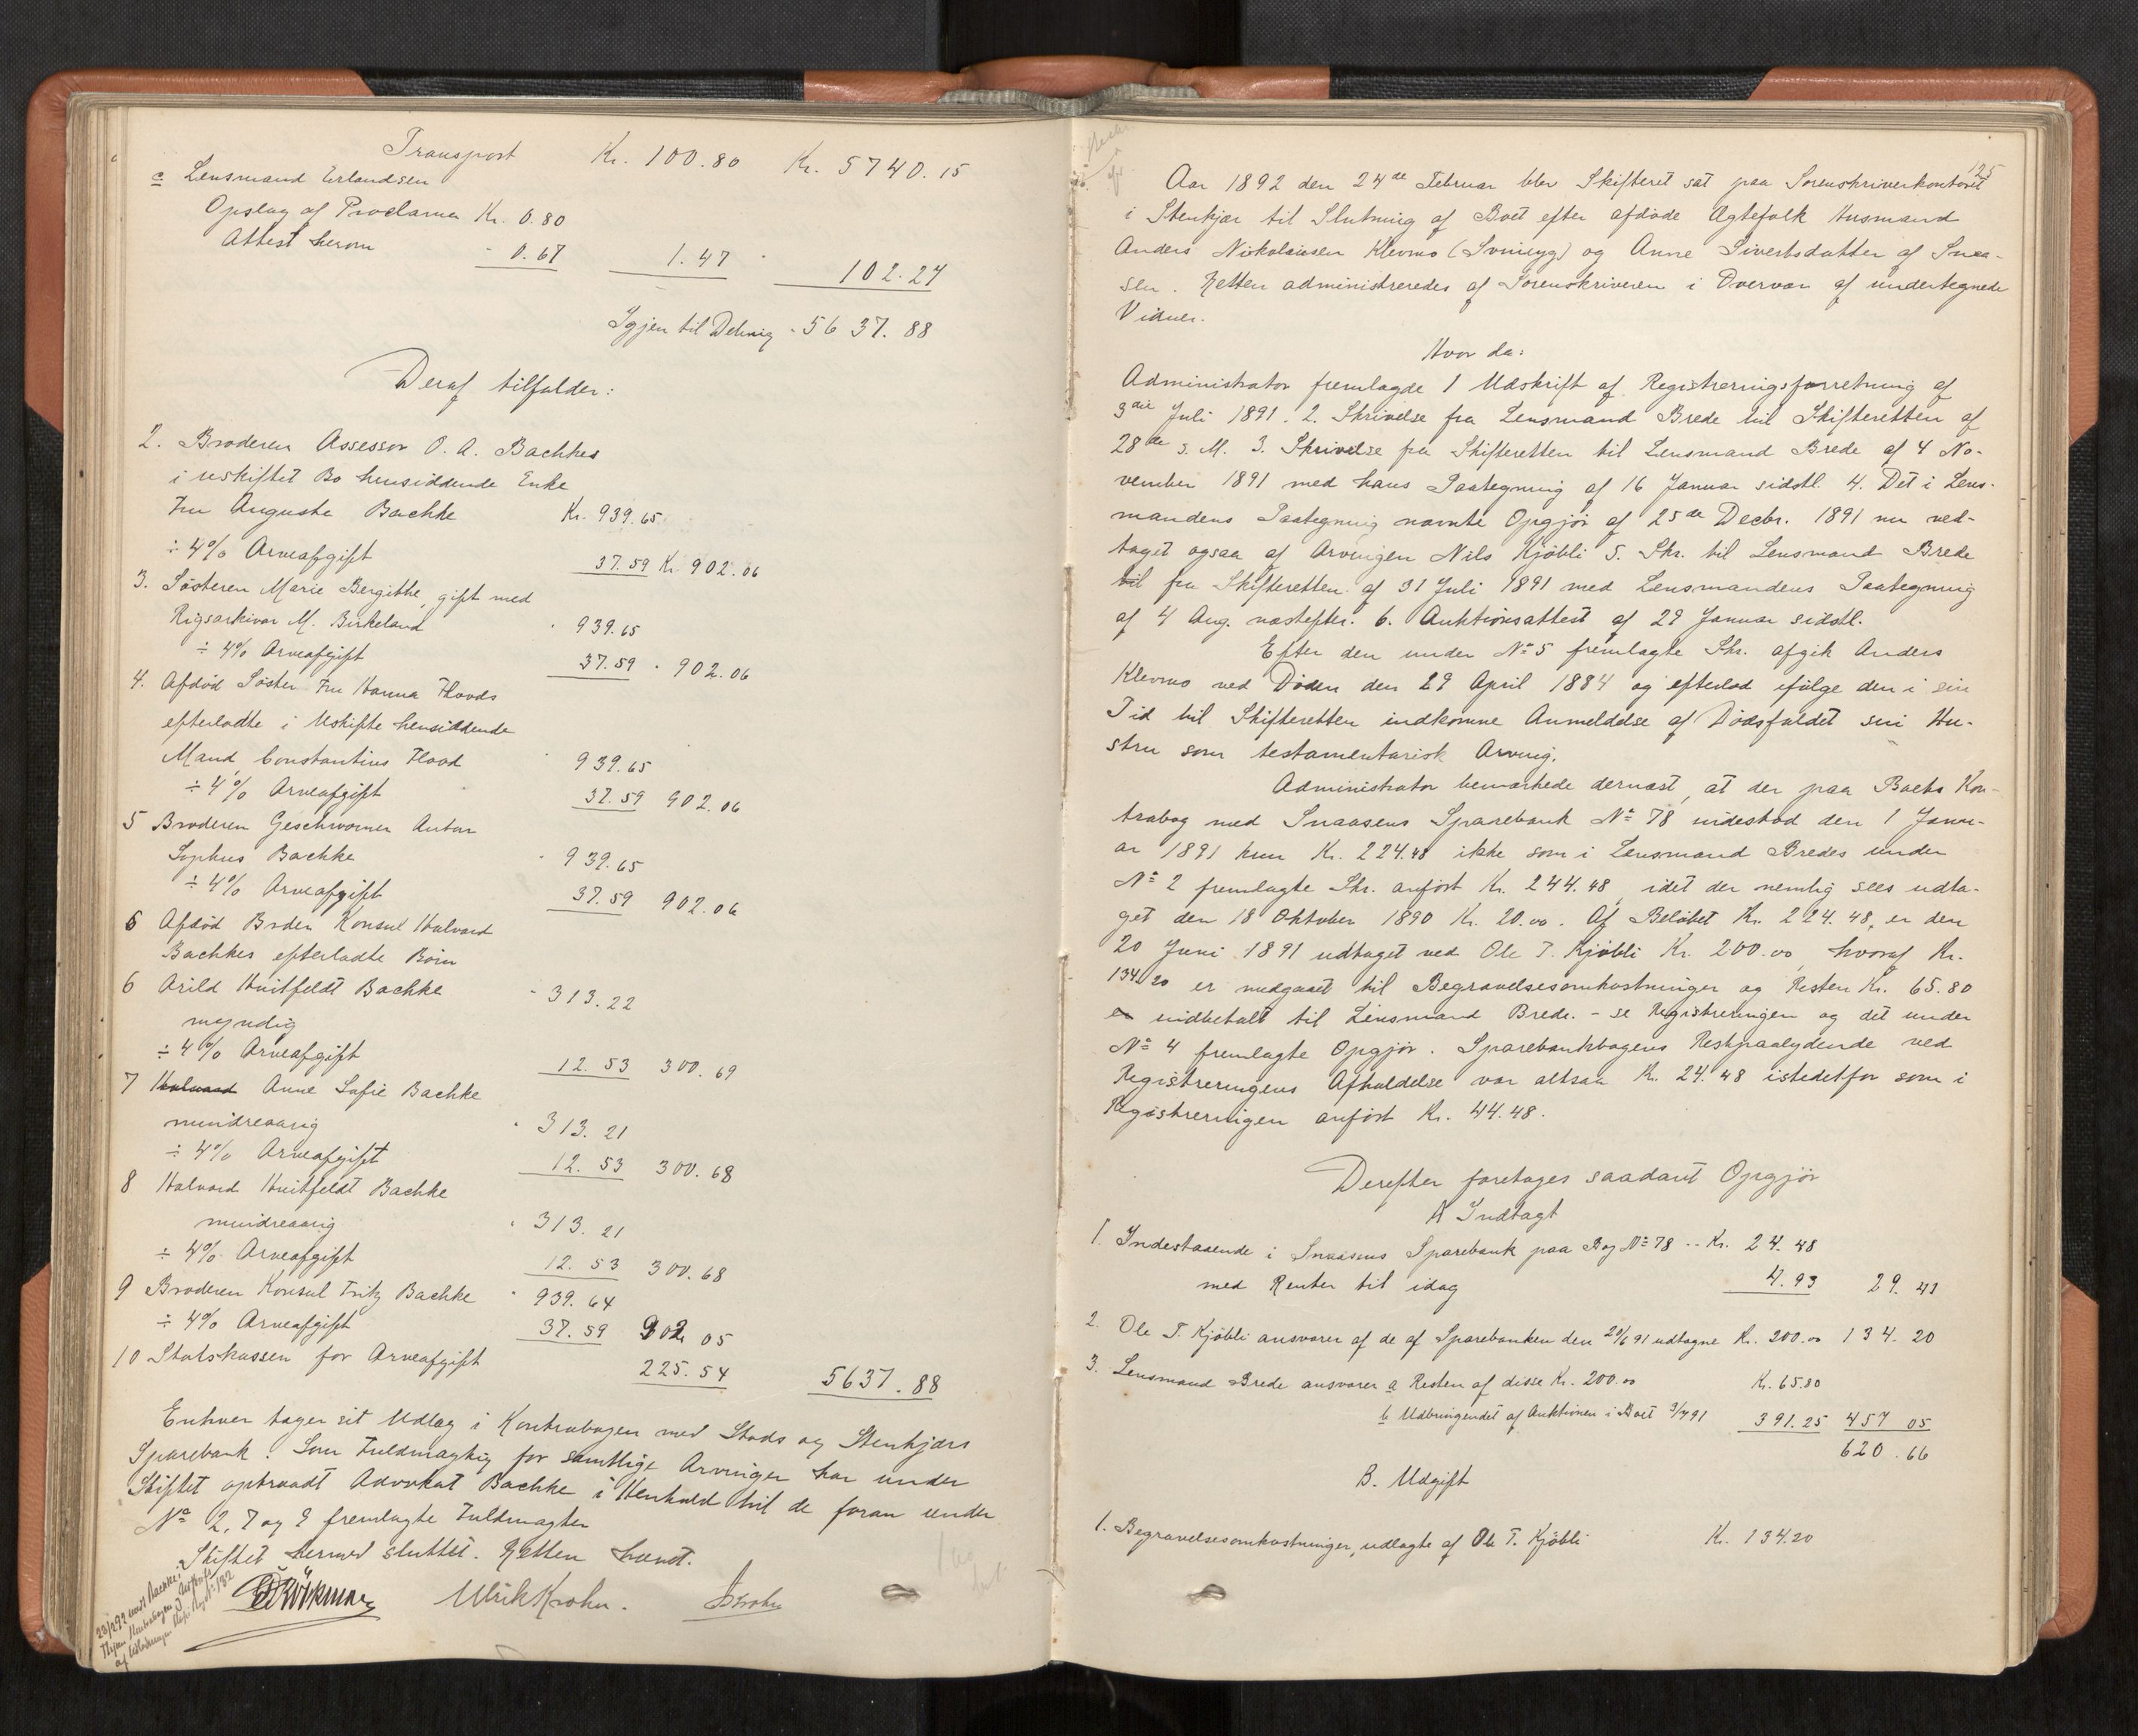 Transport Kr. 100.80 Kr. 5740.15
c Lensmand Erlandsen
Opslag af Proclama Kr. 0.80
Attest herom " 0.67 1.47 " 102.27
Igjen til Deling " 5637.88
Deraf tilfalder:
2. Broderen Assessor O. A. Bachkes
i uskiftet Bo hensiddende Enke
Fru Auguste Bachke Kr. 939.65
÷ 4% Arveafgift 37.59 Kr. 902.06
3. Søsteren Marie Bergithe, gift med
Rigsarkivar M. Birkeland " 939.65
÷ 4% Arveafgift 37.59 " 902.06
4. Afdød Søster Fru Hanna Floods
efterladte i Uskifte hensiddende
Mand Constantius Flood " 939.65
÷ 4% Arveafgift 37.59 902.06
5 Broderen Geschworner Anton
Sophus Bachke " 939.65
÷ 4% Arveafgift 37.59 902.06
6 Afdød Broder Konsul Halvard
Bachkes efterladte Børn
6 Arild Huitfeldt Bachke " 313.22
myndig
÷ 4% Arveafgift 12.53 300.69
7 Halvard Anne Sofie Bachke
mindreaarig " 313.21
÷ 4% Arveafgift 12.53 300.68
8 Halvard Huitfeldt Bachke
mindreaarig " 313.21
÷ 4% Arveafgift 12.53 300.68
9 Broderen Konsul Fritz Bachke " 939.64
÷ 4% Arveafgift 37.59 902.05
10 Statskassen for Arveafgift 225.54 5637.88
Enhver tager sit Udlæg i Kontrabogen med Stods og Stenkjærs
Sparebank. Som Fuldmægtig for samtlige Arvinger har under
Skiftet optraadt Advokat Bachke i Henhold til de foran under
No 2, 7 og 9 fremlagte Fuldmagter
Skiftet hermed sluttet. Retten hævet.
Ulrik Krohn. Krohn
125
Aar 1892 den 24de Februar blev Skifteret sat paa Sorenskriverkontoret
i Stenkjær til Slutning af Boet efter afdøde Ægtefolk Husmand
Anders Nikolaisen Klevmo (Svinryg) og Anne Sivertsdatter af Snaa-
sen. Retten administreredes af Sorenskriveren i Overvær af undertegnede
Vidner.
Hvor da:
Administrator fremlagde 1 Udskrift af Registreringsforretning af
3die Juli 1891. 2. Skrivelse fra Lensmand Brede til Skifteretten af
28de s. M. 3. Skrivelse fra Skifteretten til Lensmand Brede af 4 No-
vember 1891 med hans Paategning af 16 Januar sidstl. 4. Det i Lens-
mandens Paategning nævnte Opgjør af 25de Decbr. 1891 nu ved-
taget ogsaa af Arvingen Nils Kjøbli 5. Skr. til Lensmand Brede
til fra Skifteretten af 31 Juli 1891 med Lensmandens Paategning
af 4 Aug. næstefter. 6. Auktionsattest af 29 Januar sidstl.
Efter den under No 5 fremlagte Skr. afgik Anders
Klevmo ved Døden den 29 April 1884 og efterlod ifølge den i sin
Tid til Skifteretten indkomne Anmeldelse af Dødsfaldet sin Hu-
stru som testamentarisk Arving.
Administrator bemærkede dernæst, at der paa Boets Kon-
trabog med Snaasens Sparebank No 78 indestod den 1 Janu-
ar 1891 kun Kr. 224.48 ikke som i Lensmand Bredes under
No 2 fremlagte Skr. anført Kr. 244.48, idet der nemlig sees udta-
get den 18 Oktober 1890 Kr. 20.00. Af Beløbet Kr. 224.48, er den
20 Juni 1891 udtaget ved Ole T. Kjøbli Kr. 200.00, hvoraf Kr.
134.20 er medgaaet til Begravelsesomkostninger og Resten Kr. 65.80
er indbetalt til Lensmand Brede. - se Registreringen og det under
No 4 fremlagte Opgjør. Sparebankbogens Restpaalydende ved
Registreringens Afholdelse var altsaa Kr. 24.48 istedetfor som i
Registreringen anført Kr. 44.48.
Derefter foretages saadant Opgjør
A Indtægt
1. Indestaaende i Snaasens Sparebank paa Bog No 78 -- Kr. 24.48
med Renter til idag 4.93 29.41
2. Ole T. Kjøbli ansvarer af de af Sparebanken den 20/6 91 udtagne Kr. 200.00 134.20
3. Lensmand Brede ansvarer a Resten af disse Kr. 200.00 Kr. 65.80
b Udbringendet af Auktionen i Boet 3/7 91 391.25 457 05
620.66
B. Udgift
1. Begravelsesomkostninger, udlagte af Ole T. Kjøbli Kr. 134.20